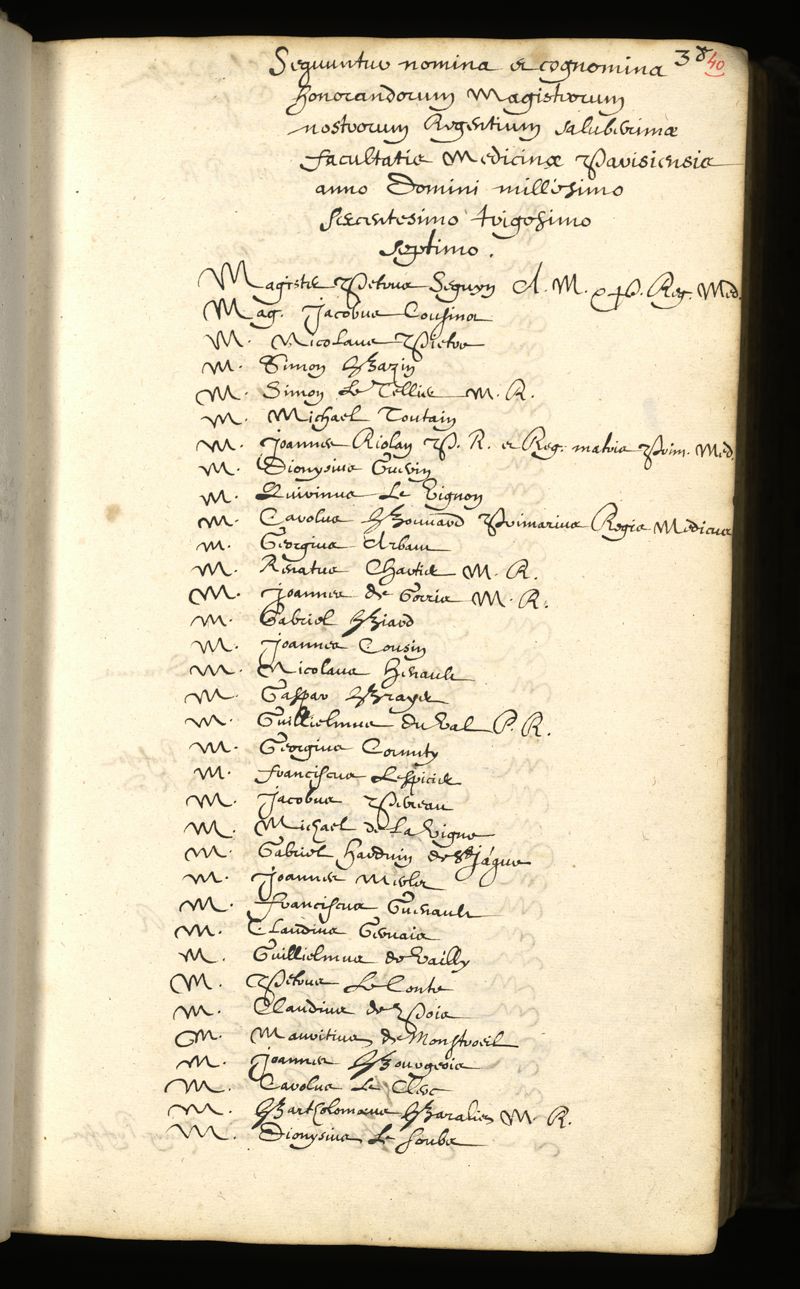 38 40
Sequuntur nomina et cognomina
honorandorum Magistrorum
nostrorum Regentium saluberrimæ
facultatis Medicinæ Parisiensis
anno Domini millesimo
sexcentesimo trigesimo
septimo.
Magister Petrus Seguyn A. M. Reg. Med.
Mag. Jacobus Cousinot
M. Nicolaus Pietre
M. Simon Bazin
M. Simon Le Tellier M. R.
M. Michael Toutain
M. Joannes Riolan P. R. et Reg. matris Prim. Med.
M. Dionysius Guerin
M. Quirinus Le Vignon
M. Carolus Bouvard Primarius Regis Medicus
M. Georgius Arbaut
M. Renatus Chartier M. R.
M. Joannes de Gorris M. R.
M. Gabriel Biard
M. Joannes Cousin
M. Nicolaus Herault
M. Gaspar Brayer
M. Guillielmus du Val P. R.
M. Georgius Cornuty
M. Franciscus Lespicier
M. Jacobus Perreau
M. Michael de La Vigne
M. Gabriel Harduin de St Jaque
M. Joannes Merlet
M. Franciscus Guenault
M. Claudius Gervais
M. Guillielmus de Vailly
M. Petrus Le Conte
M. Claudius de Pois
M. Mauritius de Monstroeil
M. Joannes Bourgeois
M. Carolus Le Clerc
M. Bartholomæus Baralies M. R.
M. Dionysius Le Soubs